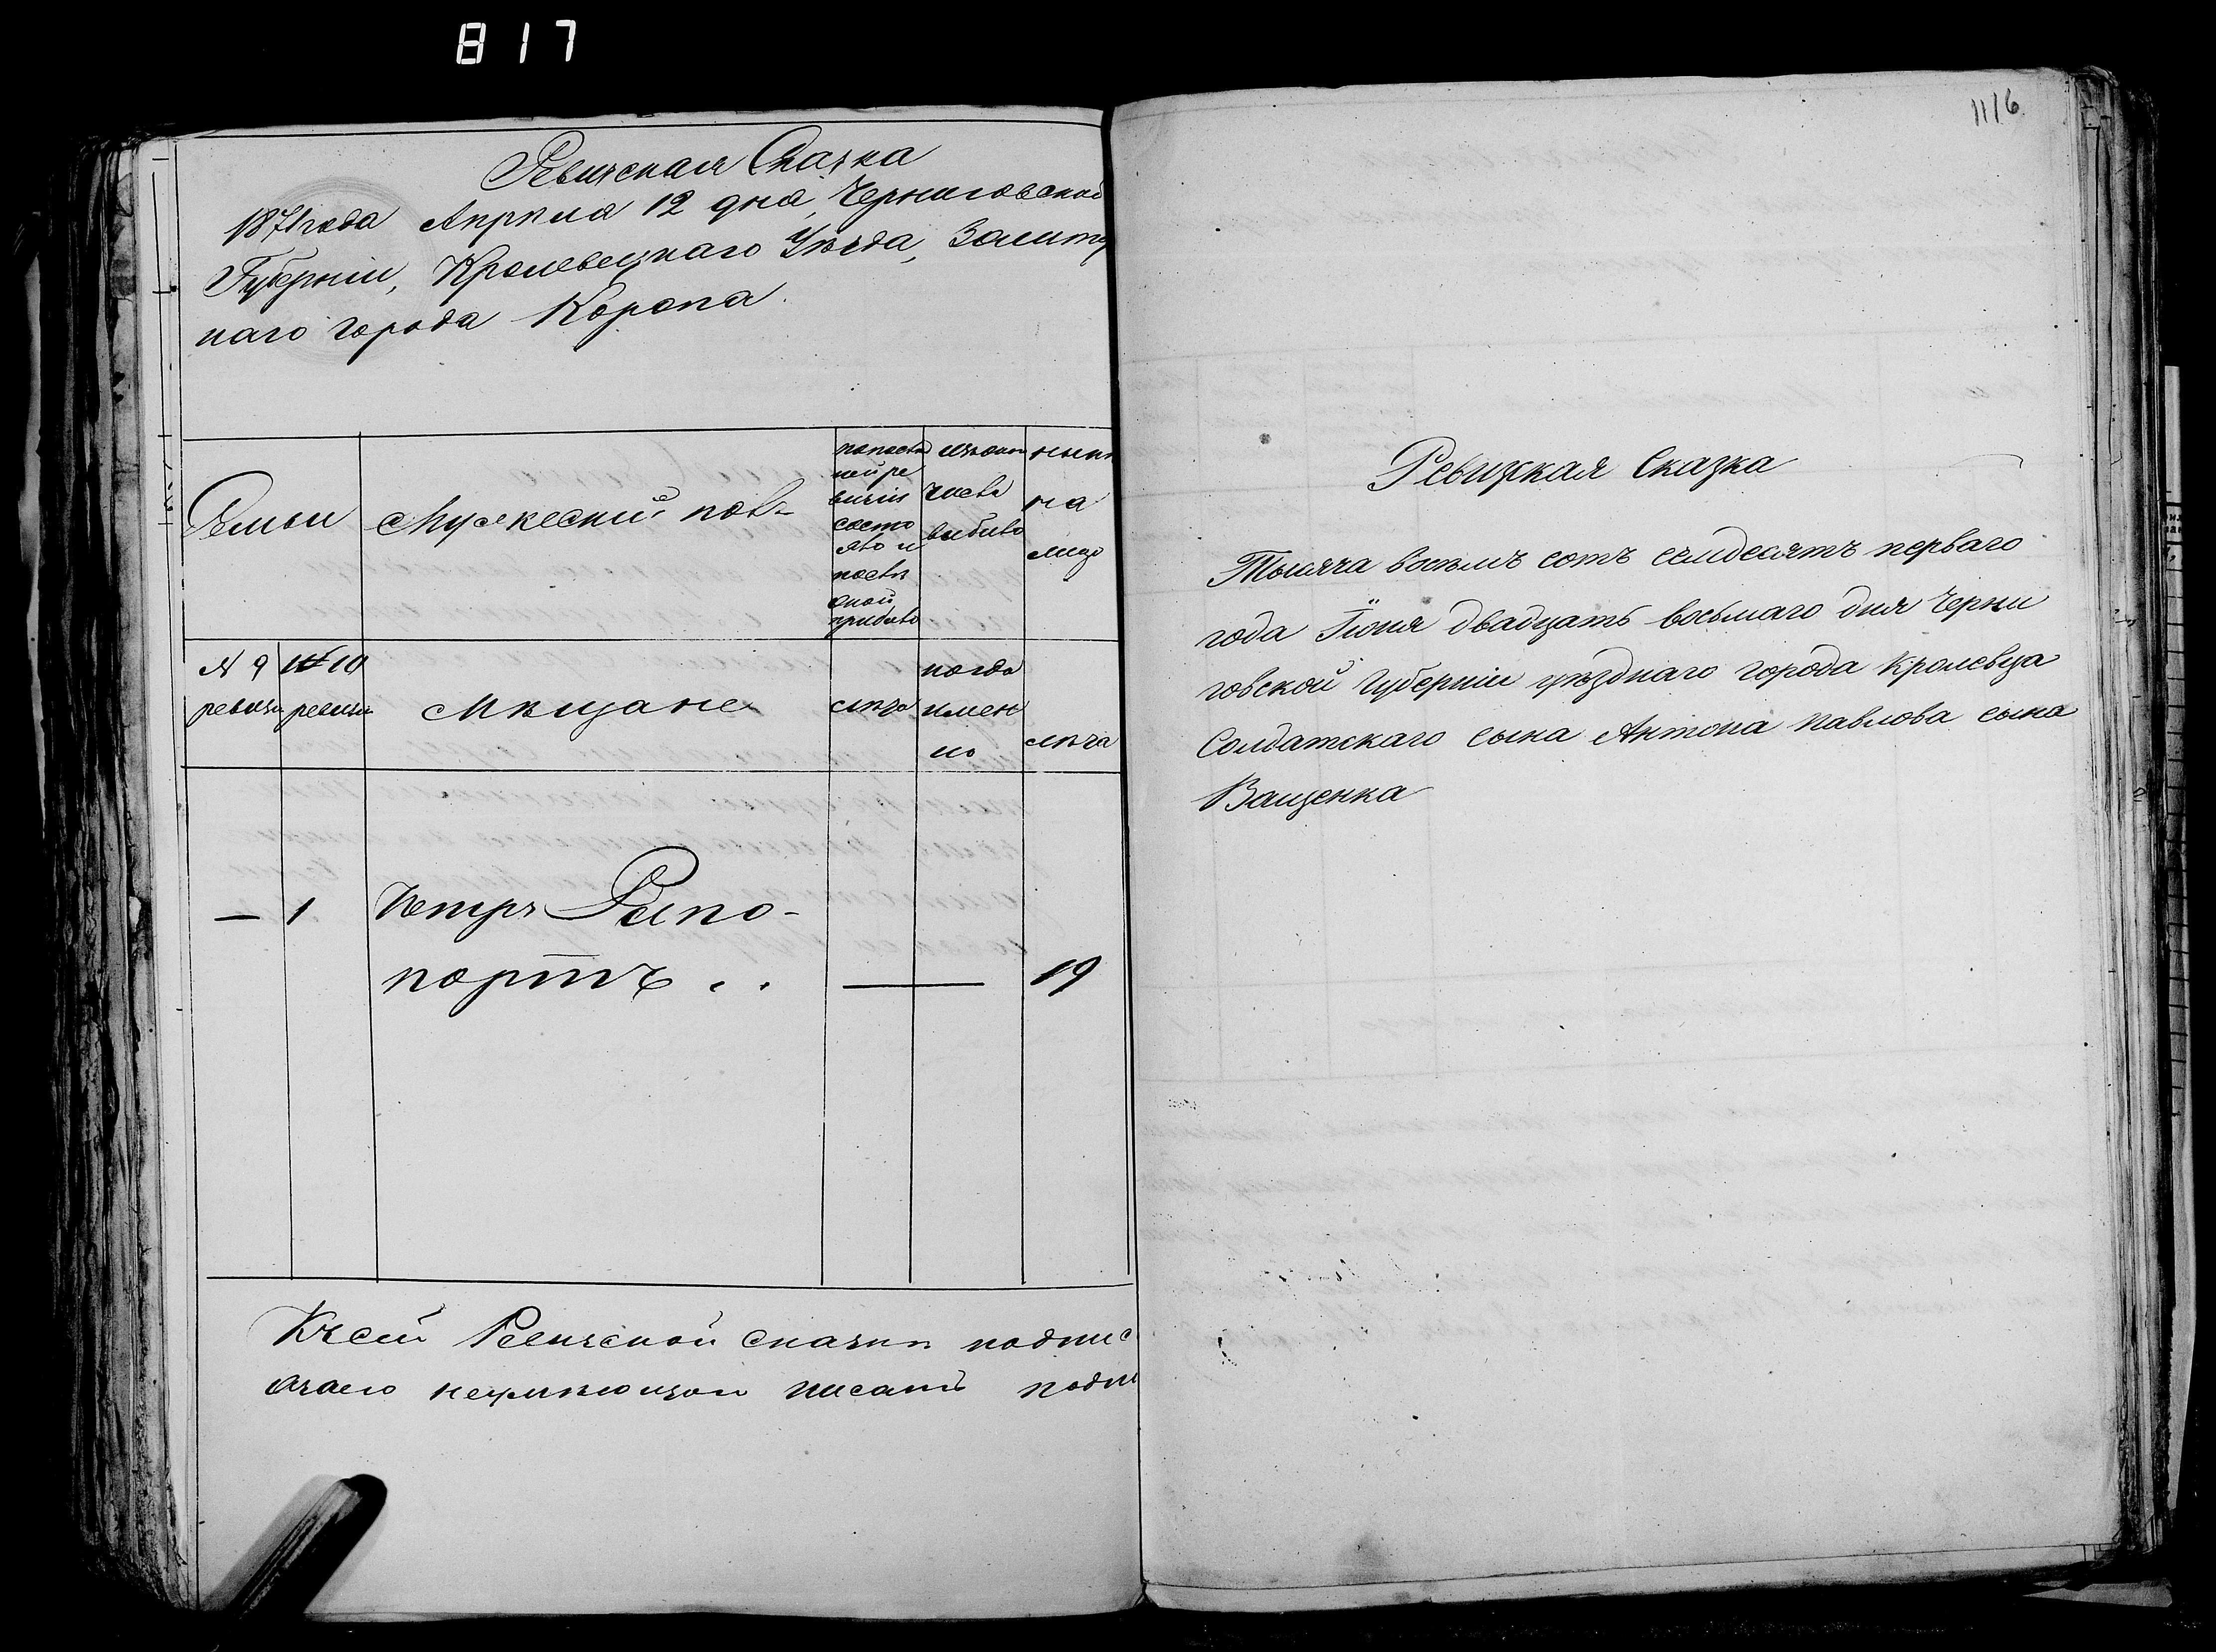 817
Ревизская Сказка
1871 года Апрѣля 12 дня, Черниговской
Губерніи, Кролевецкаго Уѣзда, Заштат
наго города Коропа.
Семьи
Мужескій полъ
по послѣд
ней ре
визіи
состо
яло и
послѣ
оной
прибыло
изъ онаго
числа
выбыло
нынѣ
на
лицо
№ 9
ревизіи
№ 10
ревизіи
Мѣщане
лѣта
когда
имен
но
лѣта
— 1 Петръ Рапо-
портъ . . — 19
Къ сей Ревизской сказки подпис
неумѣющаго писать подпи
1116
Ревизская Сказка
Тысяча восемь сотъ семдесятъ перваго
года Іюня двадцать восьмаго дня Черни
говской губерніи уѣзднаго города Кролевца
Солдатскаго сына Антона Павлова сына
Ващенка